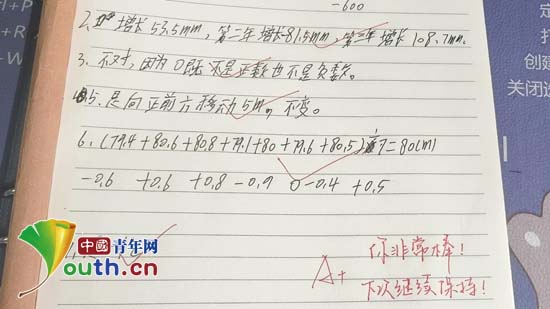 -600
2. 增长53.5mm，第二年增长81.5mm，第三年增长108.7mm.
3. 不对，因为0既不是正数也不是负数。
5. 是向正前方移动5m。不变。
6. (79.4+80.6+80.8+79.1+80+79.6+80.5)÷7=80(m)
-0.6 +0.6 +0.8 -0.9 0 -0.4 +0.5
A+
你非常棒！
下次继续保持！
中國青年网
youth.cn
定
打
创建
关闭选